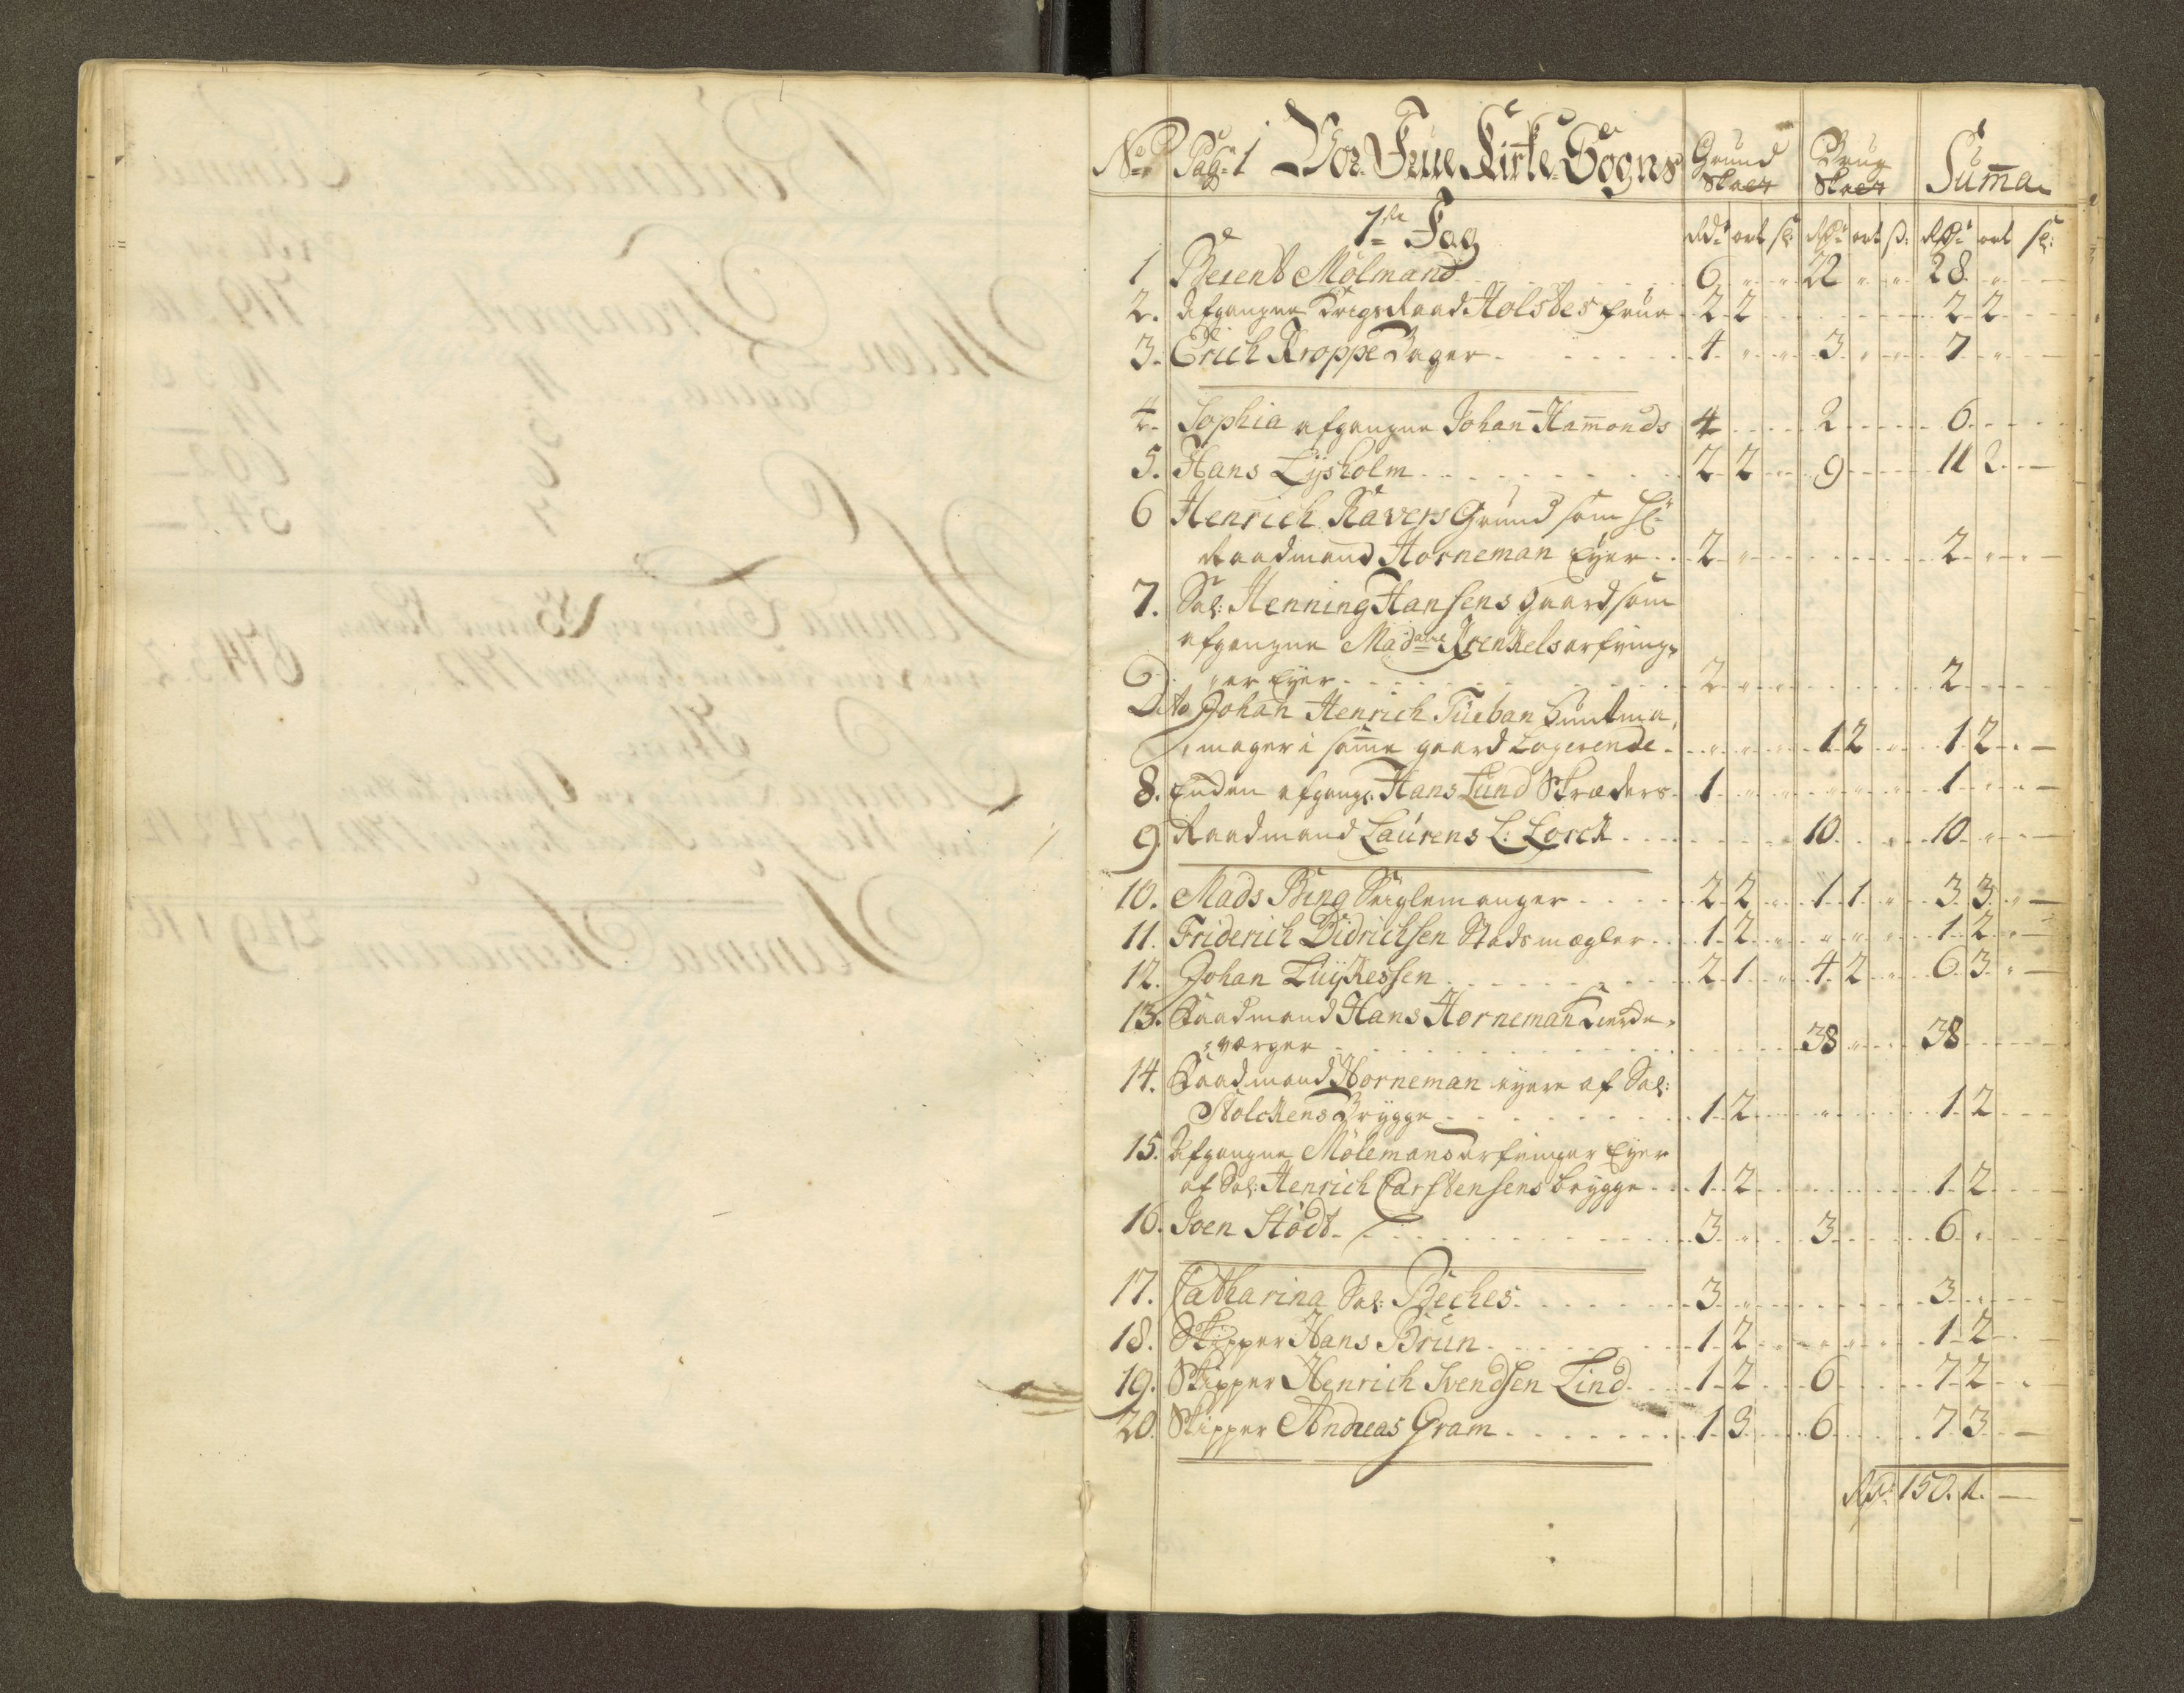 No Pag: 1 Vor Frue Kirke Sogns Grund Skatt Brug Skatt Summa
1te Fag Rdr ort sk: Rdr ort s: Rdr ort sk:
1 Berent Mølmand 6 22 28
2. Afgangne Krigsraad Holstes frue 2 2 2 2
3. Erich Kroppe Bager 4 3 7
4. Sophia afgangne Johan Hamonds 4 2 6
5. Hans Lysholm 2 2 9 11 2
6 Henrich Ravers Grund som Hr
Raadmand Horneman Eyer 2 2
7. Sal: Henning Hansens Gaard som
afgangne Madame Krenkels arfving,
,er Eyer 2 2
Dito Johan Henrich Tueban Buntma,
,mager i samme gaard Logerende 1 2 1 2
8. Enken afgangs: Hans Lund Skræders 1 1
9. Raadmand Laurens L: Lorck 10 10
10. Mads Bing Seiglemager 2 2 1 1 3 3
11. Friderich Didrichsen Stadsmægler 1 2 1 2
12. Johan Luykessen 2 1 4 2 6 3
13. Raadmand Hans Horneman Kierke,
,værger 38 38
14. Raadmand Horneman eyere af Sal:
Stolckens Brygge 1 2 1 2
15. Afgangne Mølemans arfvinger Eyer
af Sal: Henrich Carstensens brygge 1 2 1 2
16. Joen Stødt 3 3 6
17. Catharina Sal: Beches 3 3
18. Skipper Hans Brun 1 2 1 2
19. Skipper Henrich Svendsen Lind 1 2 6 7 2
20. Skipper Andreas Gram 1 3 6 7 3
Rdr 150. 1. —